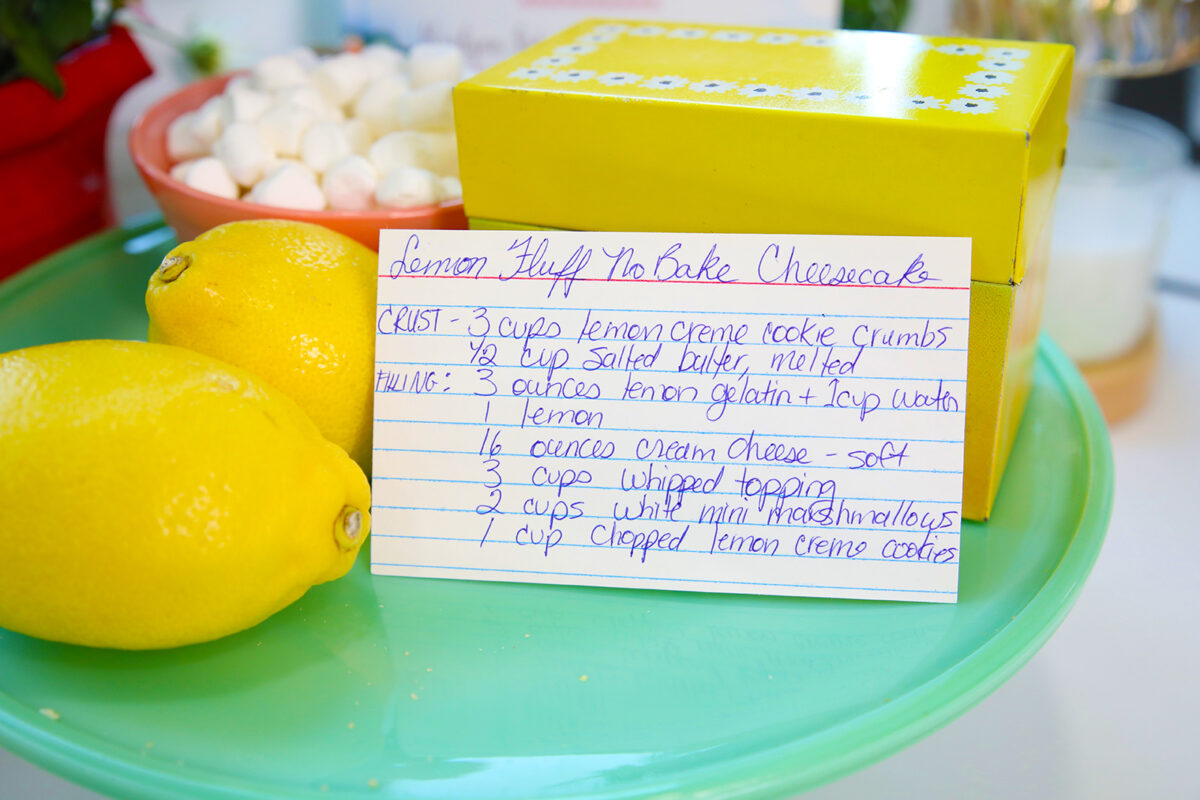 Lemon Fluff No Bake Cheesecake
CRUST - 3 cups lemon creme cookie crumbs
1/2 cup salted butter, melted
FILLING: 3 ounces lemon gelatin + 1 cup water
1 lemon
16 ounces cream cheese - soft
3 cups whipped topping
2 cups white mini marshmallows
1 cup chopped lemon creme cookies